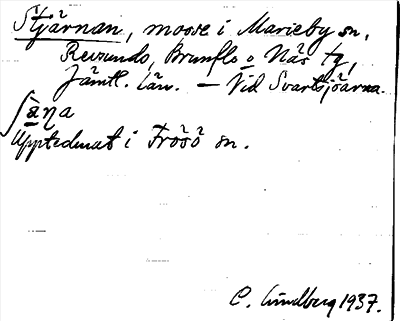 Stjärnan, mosse i Marieby sn,
Revsunds, Brunflo o Näs tg,
Jämtl. län. — Vid Svartsjöarna.
ʃä̀ɳa
Upptecknat i Frösö sn.
C. Lindberg 1937.